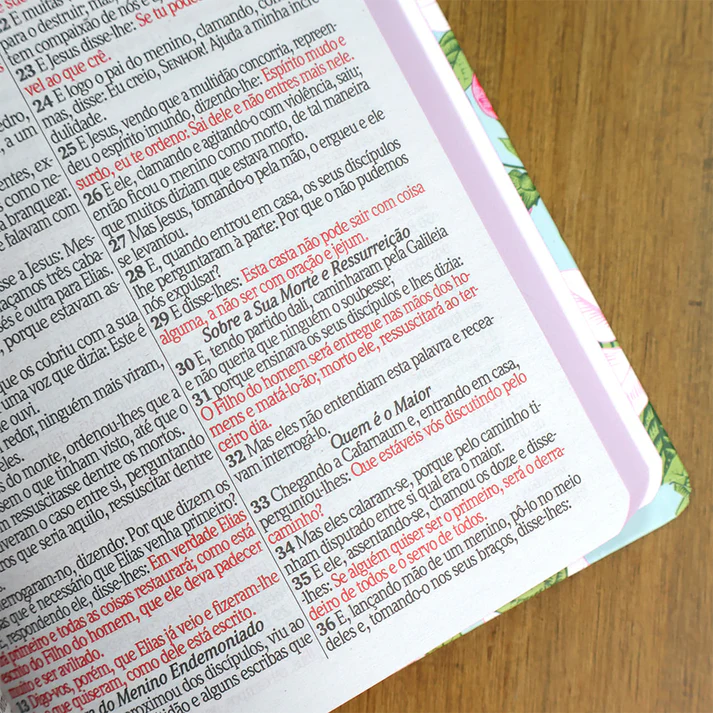 dro,
, a um
entes, ex-
s como ne-
a branquear.
e falavam com
sse a Jesus: Mes-
açamos três caba-
sés e outra para Elias.
, porque estavam as-
que os cobriu com a sua
uma voz que dizia: Este é
e ouvi.
redor, ninguém mais viram,
eles.
s do monte, ordenou-lhes que a
sem o que tinham visto, até que o
m ressuscitasse dentre os mortos.
veram o caso entre si, perguntando
ros que seria aquilo, ressuscitar dentre
errogaram-no, dizendo: Por que dizem os
as que é necessário que Elias venha primeiro?
respondendo ele, disse-lhes: Em verdade Elias
primeiro e todas as coisas restaurará; como está
escrito do Filho do homem, que ele deva padecer
muito e ser aviltado.
13 Digo-vos, porém, que Elias já veio e fizeram-lhe
que quiseram, como dele está escrito.
do Menino Endemoniado
aproximou dos discípulos, viu ao
multidão e alguns escribas que
para o destruir; mas,
tem compaixão de nós e
23 E Jesus disse-lhe: Se tu pode
vel ao que crê.
24 E logo o pai do menino, clamando, com
mas, disse: Eu creio, SENHOR! Ajuda a minha incre
dulidade.
25 E Jesus, vendo que a multidão concorria, repreen-
deu o espírito imundo, dizendo-lhe: Espírito mudo e
surdo, eu te ordeno: Sai dele e não entres mais nele.
26 E ele, clamando e agitando-o com violência, saiu;
então ficou o menino como morto, de tal maneira
que muitos diziam que estava morto.
27 Mas Jesus, tomando-o pela mão, o ergueu e ele
se levantou.
28 E, quando entrou em casa, os seus discípulos
lhe perguntaram à parte: Por que o não pudemos
nós expulsar?
29 E disse-lhes: Esta casta não pode sair com coisa
alguma, a não ser com oração e jejum.
Sobre a Sua Morte e Ressurreição
30 E, tendo partido dali, caminharam pela Galileia
e não queria que ninguém o soubesse;
31 porque ensinava os seus discípulos e lhes dizia:
O Filho do homem será entregue nas mãos dos ho-
mens e matá-lo-ão; morto ele, ressuscitará ao ter-
ceiro dia.
32 Mas eles não entendiam esta palavra e recea-
vam interrogá-lo.
Quem é o Maior
33 Chegando a Cafarnaum e, entrando em casa,
perguntou-lhes: Que estáveis vós discutindo pelo
caminho?
34 Mas eles calaram-se, porque pelo caminho ti-
nham disputado entre si qual era o maior.
35 E ele, assentando-se, chamou os doze e disse-
-lhes: Se alguém quiser ser o primeiro, será o derra-
deiro de todos e o servo de todos.
36 E, lançando mão de um menino, pô-lo no meio
deles e, tomando-o nos seus braços, disse-lhes: